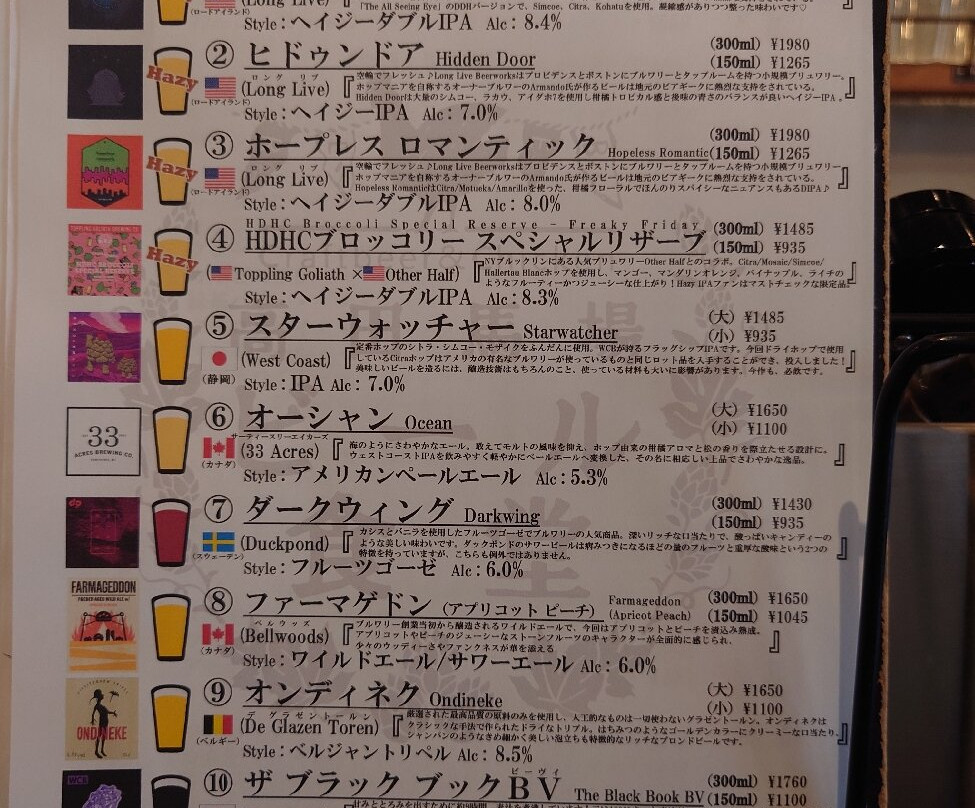 (Long Live)
(ロードアイランド)
『「The All Seeing Eye」のDDHバージョンで、Simcoe、Citra、Kohatuを使用。凝縮感がありつつ整った味わいです♡』
Style：ヘイジーダブルIPA Alc：8.4%
② ヒドゥンドア Hidden Door
(300ml) ¥1980
(150ml) ¥1265
Hazy
ロング リブ
(Long Live)
(ロードアイランド)
『空輸でフレッシュ♪Long Live Beerworksはプロビデンスとボストンにブルワリーとタップルームを持つ小規模ブリュワリー。
ホップマニアを自称するオーナーブルワーのArmando氏が作るビールは地元のビアギークに熱烈な支持をされている。
Hidden Doorは大量のシムコー、ラカウ、アイダホ7を使用し柑橘トロピカル感と後味の青さのバランスが良いヘイジーIPA。』
Style：ヘイジーIPA Alc：7.0%
③ ホープレス ロマンティック Hopeless Romantic
(300ml) ¥1980
(150ml) ¥1265
Hazy
ロング リブ
(Long Live)
(ロードアイランド)
『空輸でフレッシュ♪Long Live Beerworksはプロビデンスとボストンにブルワリーとタップルームを持つ小規模ブリュワリー。
ホップマニアを自称するオーナーブルワーのArmando氏が作るビールは地元のビアギークに熱烈な支持をされている。
Hopeless RomanticはCitra/Motueka/Amarilloを使った、柑橘フローラルでほんのりスパイシーなニュアンスもあるDIPA♪』
Style：ヘイジーダブルIPA Alc：8.0%
HDHC Broccoli Special Reserve - Freaky Friday
④ HDHCブロッコリー スペシャルリザーブ
(300ml) ¥1485
(150ml) ¥935
Hazy
(Toppling Goliath ×Other Half)
『NYブルックリンにある人気ブリュワリーOther Halfとのコラボ。Citra/Mosaic/Simcoe/
Hallertau Blancホップを使用し、マンゴー、マンダリンオレンジ、パイナップル、ライチの
ようなフルーティーかつジューシーな仕上がり！Hazy IPAファンはマストチェックな限定品』
Style：ヘイジーダブルIPA Alc：8.3%
⑤ スターウォッチャー Starwatcher
(大) ¥1485
(小) ¥935
(West Coast)
(静岡)
『定番ホップのシトラ・シムコー・モザイクをふんだんに使用。WCBが誇るフラッグシップIPAです。今回ドライホップで使用
しているCitraホップはアメリカの有名なブルワリーが使っているものと同じロット品を入手することができ、投入しました！
美味しいビールを造るには、醸造技術はもちろんのこと、使っている材料も大いに影響があります。今作も、必飲です。』
Style：IPA Alc：7.0%
⑥ オーシャン Ocean
(大) ¥1650
(小) ¥1100
-33-
ACRES BREWING CO.
サーティースリーエイカーズ
(33 Acres)
(カナダ)
『海のようにさわやかなエール。敢えてモルトの風味を抑え、ホップ由来の柑橘アロマと松の香りを際立たせる設計に。
ウェストコーストIPAを飲みやすく軽やかにペールエールへ変換した、その名に相応しい上品でさわやかな逸品。』
Style：アメリカンペールエール Alc：5.3%
⑦ ダークウィング Darkwing
(300ml) ¥1430
(150ml) ¥935
(Duckpond)
(スウェーデン)
『カシスとバニラを使用したフルーツゴーゼでブルワリーの人気商品。深いリッチな口当たりで、酸っぱいキャンディーの
ような美しい味わいです。ダックポンドのサワービールは病みつきになるほどの量のフルーツと重厚な酸味という2つの
特徴を持っていますが、こちらも例外ではありません。』
Style：フルーツゴーゼ Alc：6.0%
FARMAGEDDON
⑧ ファーマゲドン (アプリコット ピーチ) Farmageddon
(Apricot Peach)
(300ml) ¥1650
(150ml) ¥1045
ベルウッズ
(Bellwoods)
(カナダ)
『ブルワリー創業当初から醸造されるワイルドエールで、今回はアプリコットとピーチを漬込み熟成。
アプリコットやピーチのジューシーなストーンフルーツのキャラクターが全面的に感じられ、
少々のウッディーさやファンクネスが華を添える』
Style：ワイルドエール/サワーエール Alc：6.0%
⑨ オンディネク Ondineke
(大) ¥1650
(小) ¥1100
ONDINEKE
デ グラゼントールン
(De Glazen Toren)
(ベルギー)
『厳選された最高品質の原料のみを使用し、人工的なものは一切使わないグラゼントールン。オンディネクは
クラシックな手法で作られたドライなトリプル。はちみつのようなゴールデンカラーにクリーミーな口当たり、
シャンパンのようなきめ細かく美しい泡立ちも特徴的なリッチなブロンドビールです。』
Style：ベルジャントリペル Alc：8.5%
⑩ ザ ブラック ブックBV The Black Book BV
ビーヴイ
(300ml) ¥1760
(150ml) ¥1100
WCB